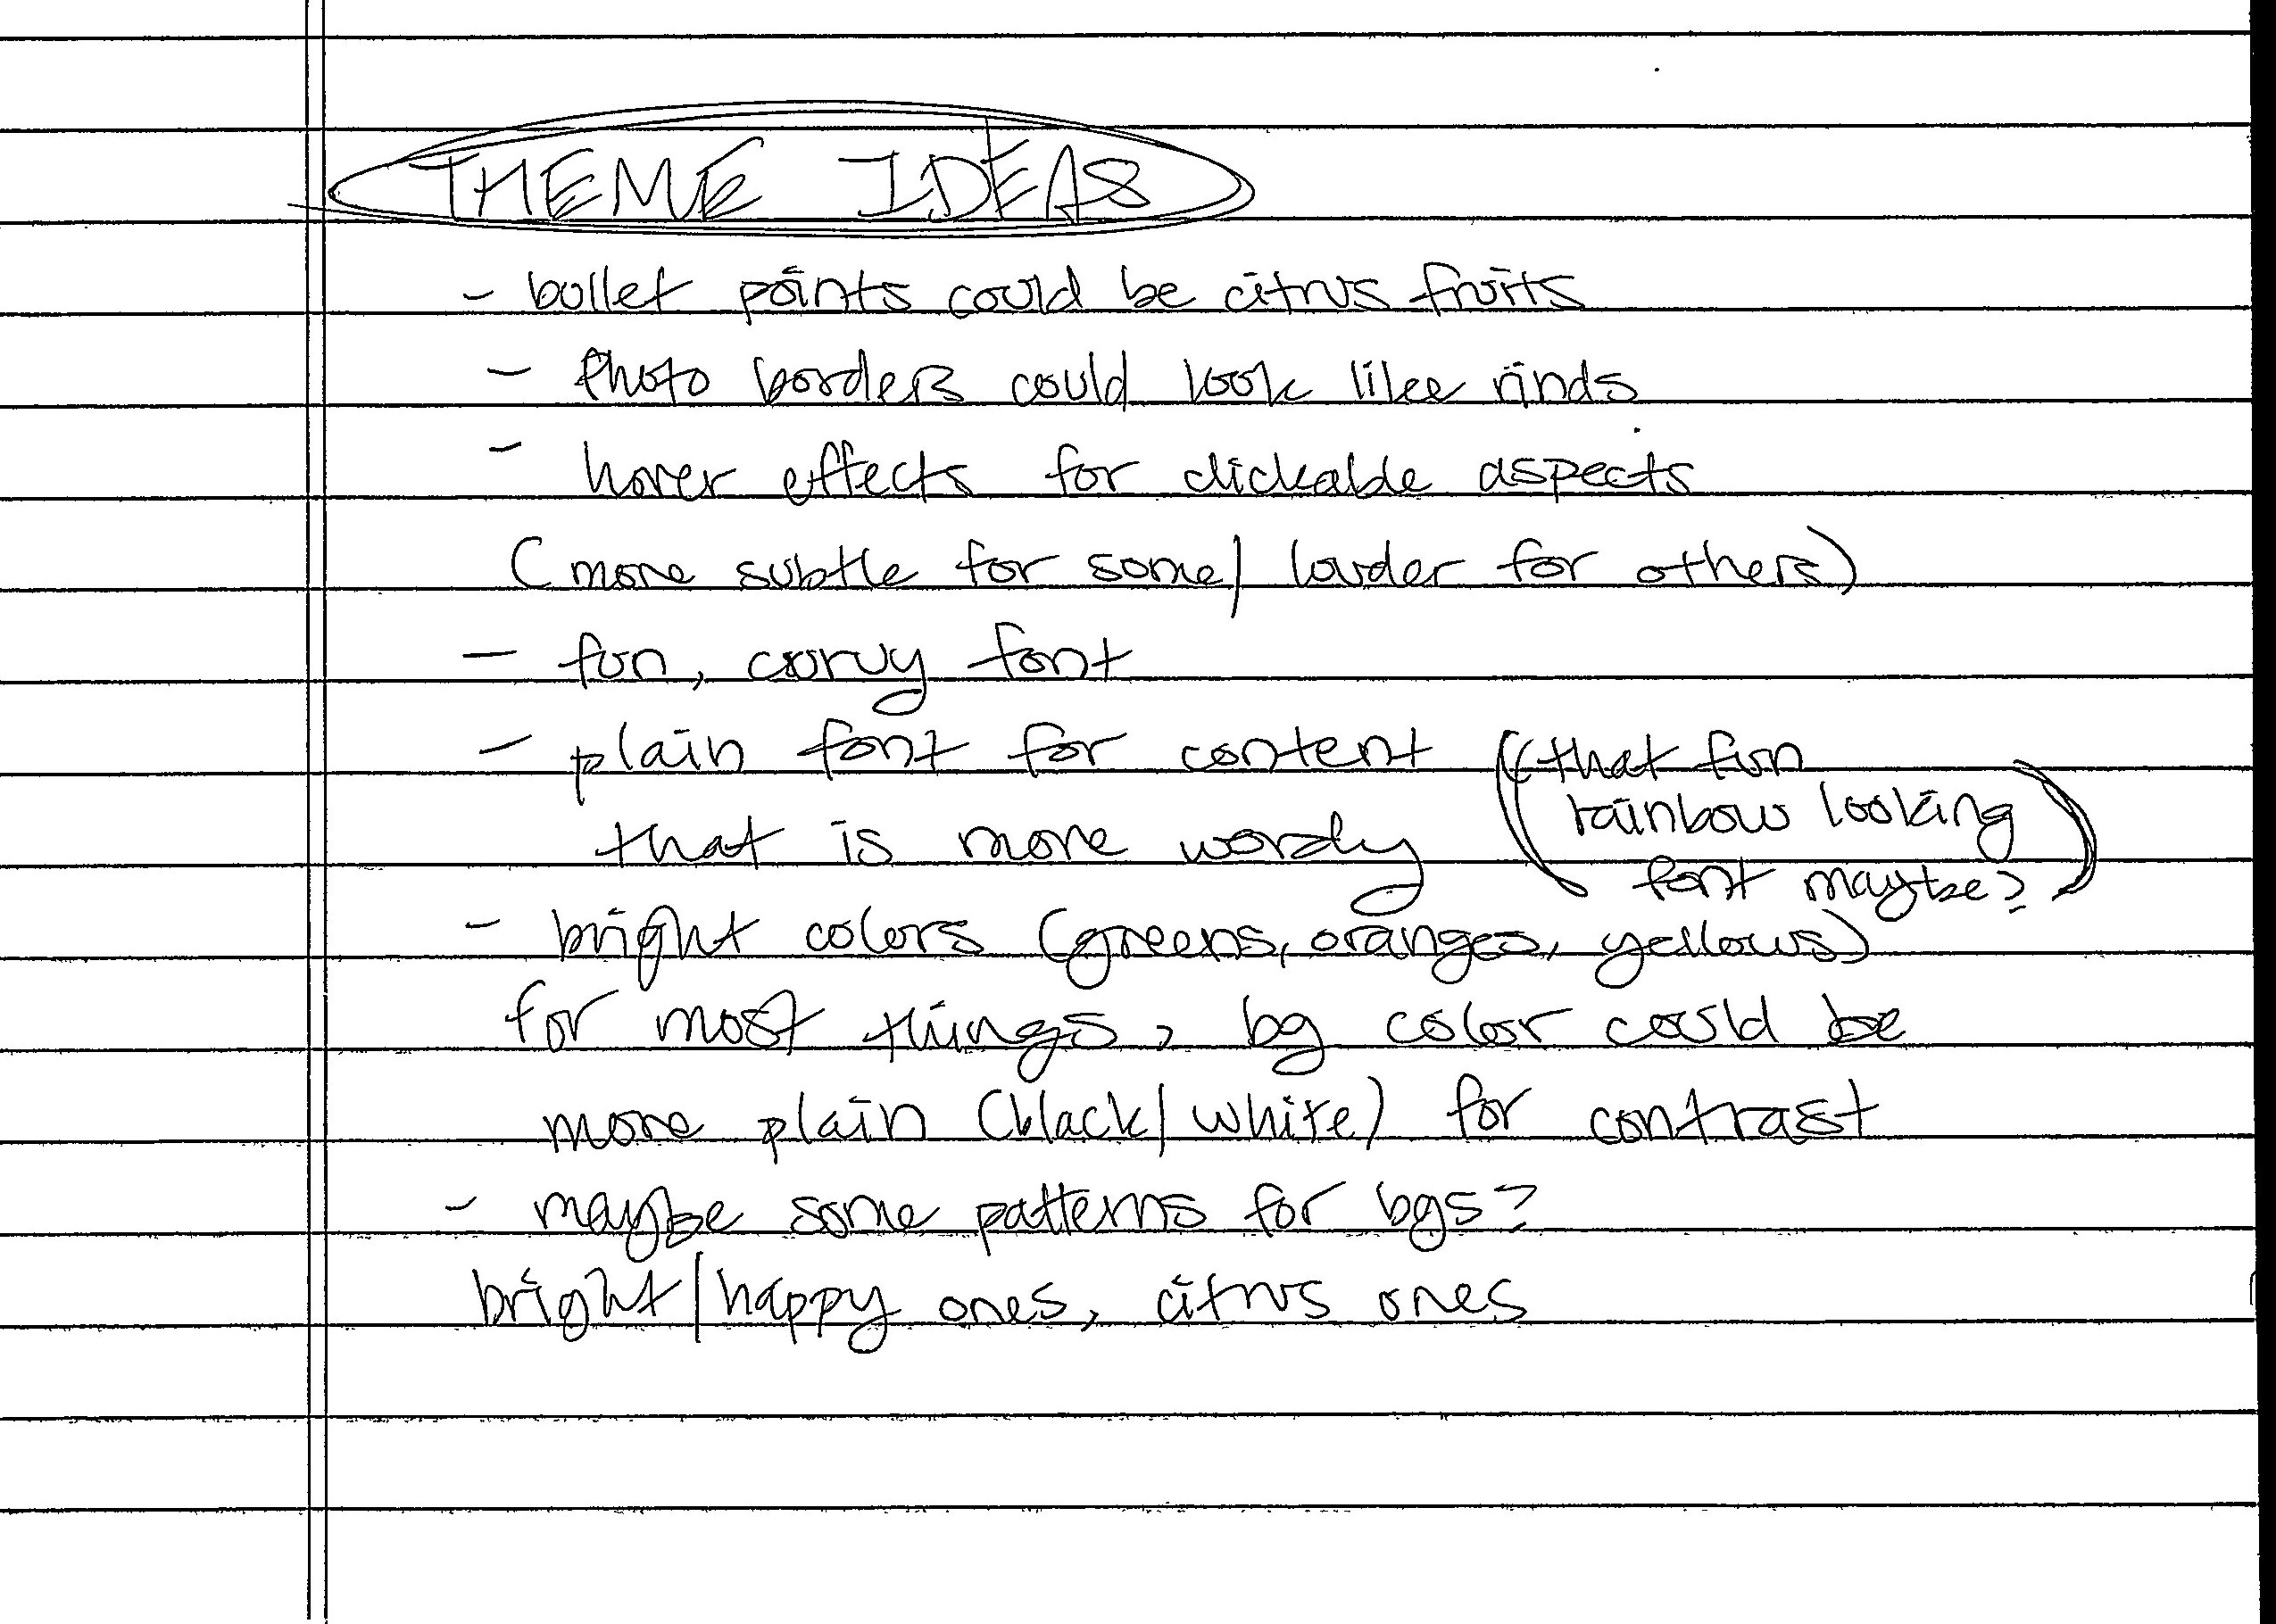 THEME IDEAS
- bullet points could be citrus fruits
- Photo borders could look like rinds
- hover effects for clickable aspects
(more subtle for some/ louder for others)
- fun, curvy font
- plain font for content ((that fun
rainbow looking
that is more wordy
font maybe?))
- bright colors (greens, oranges, yellows)
for most things, bg color could be
more plain (black/white) for contrast
- maybe some patterns for bgs?
bright/happy ones, citrus ones